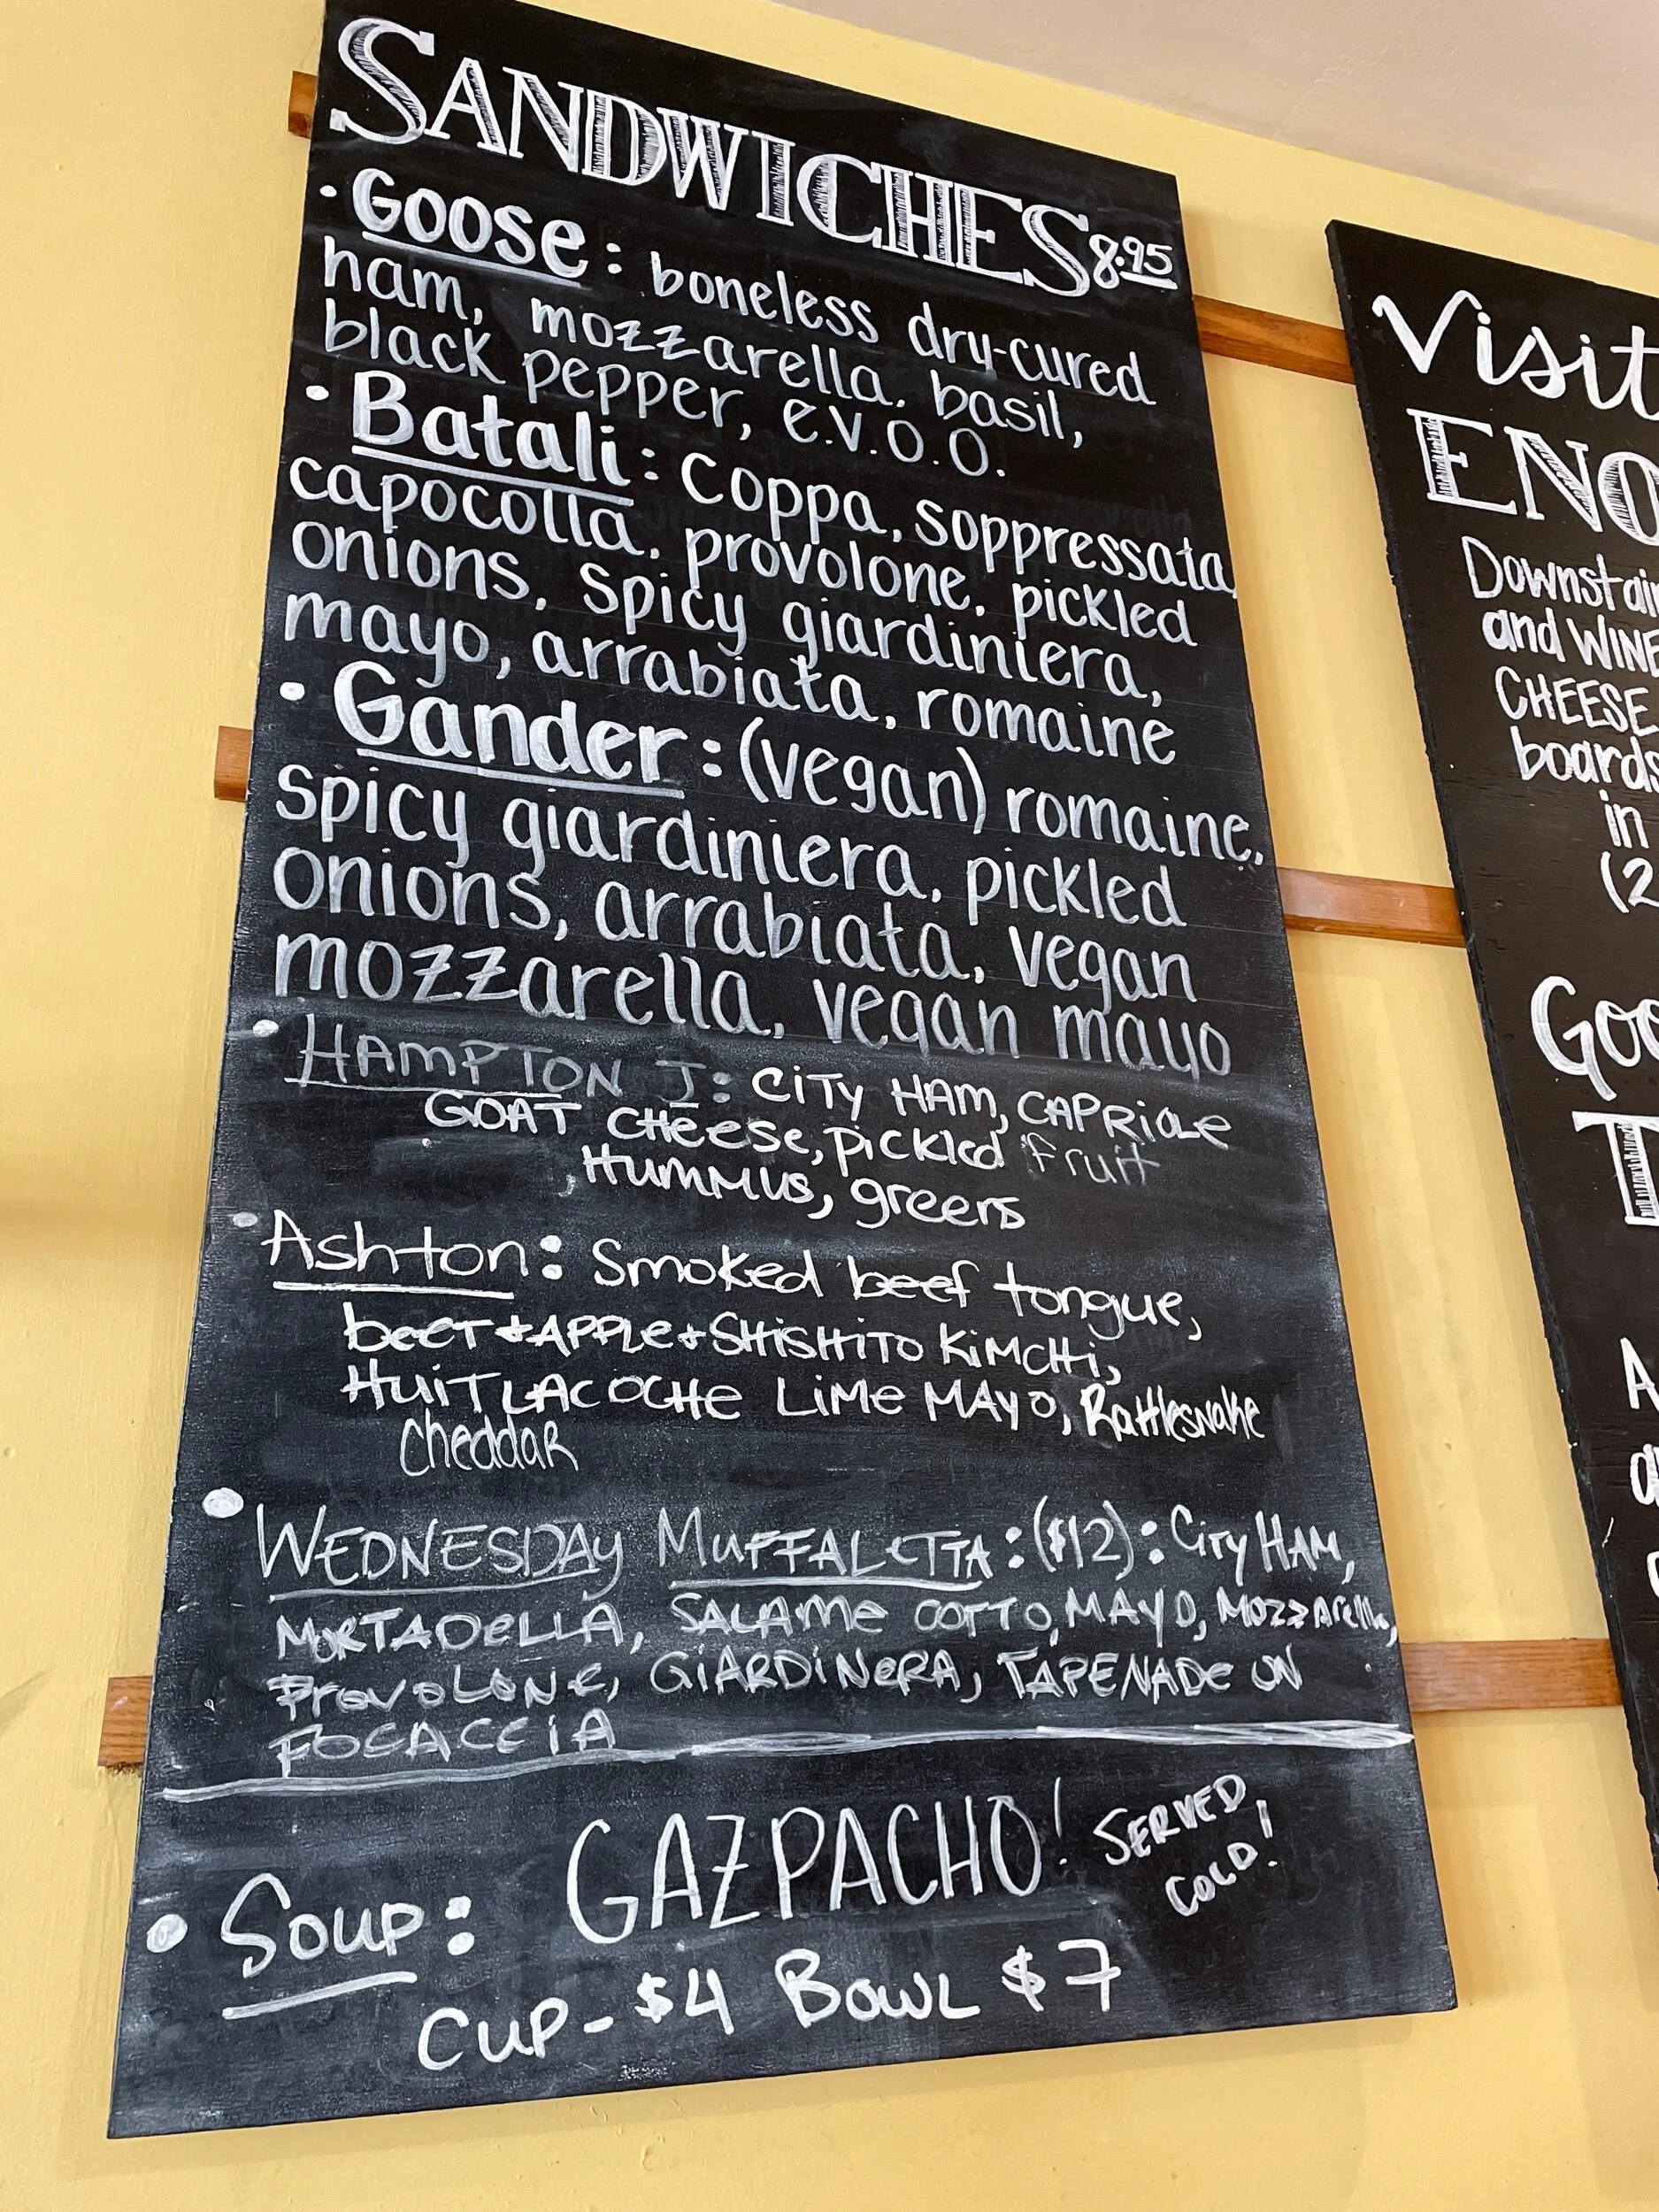 SANDWICHES 8.95
• Goose: boneless dry-cured
ham, mozzarella, basil,
black pepper, e.v.o.o.
• Batali: coppa, soppressata,
capocolla, provolone, pickled
onions, spicy giardiniera,
mayo, arrabiata, romaine
• Gander: (vegan) romaine,
spicy giardiniera, pickled
onions, arrabiata, vegan
mozzarella, vegan mayo
• HAMPTON J: CITY HAM, CAPRIOLE
GOAT CHEESE, PICKLED fruit
HUMMUS, greens
• Ashton: Smoked beef tongue,
beet + APPLE + SHISHITO KIMCHI,
HUITLACOCHE LIME MAYO, Rattlesnake
Cheddar
• WEDNESDAY MUFFALETTA: ($12): City HAM,
MORTADELLA, SALAME COTTO, MAYO, MOZZArella,
PrOVOLONE, GIARDINERA, TAPENADE ON
FOCACCIA
• Soup: GAZPACHO! SERVED
COLD!
CUP - $4 BOWL $7
Visit
ENO
and WINE
CHEESE
boards
in
(2